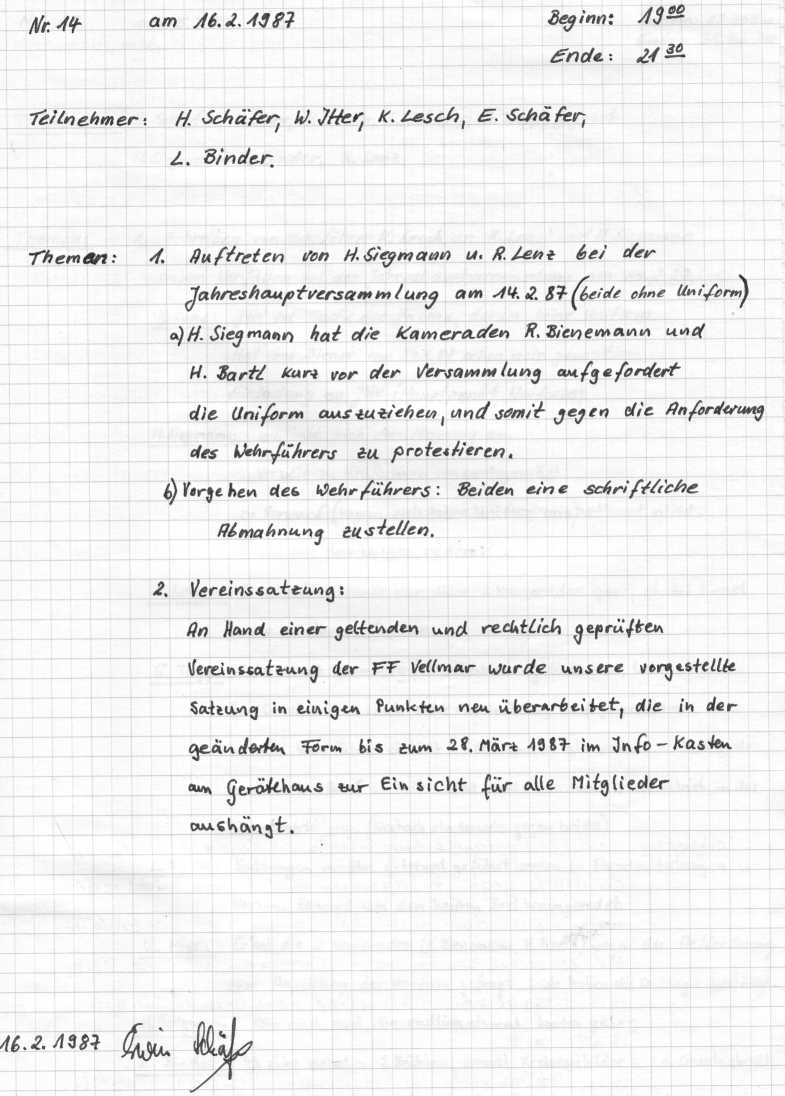 Nr. 14 am 16.2.1987 Beginn: 19⁰⁰
Ende: 21³⁰
Teilnehmer: H. Schäfer, W. Itter, K. Lesch, E. Schäfer,
L. Binder.
Themen: 1. Auftreten von H. Siegmann u. R. Lenz bei der
Jahreshauptversammlung am 14.2.87 (beide ohne Uniform)
a) H. Siegmann hat die Kameraden R. Bienemann und
H. Bartl kurz vor der Versammlung aufgefordert
die Uniform auszuziehen, und somit gegen die Anforderung
des Wehrführers zu protestieren.
b) Vorgehen des Wehrführers: Beiden eine schriftliche
Abmahnung zustellen.
2. Vereinssatzung:
An Hand einer geltenden und rechtlich geprüften
Vereinssatzung der FF Vellmar wurde unsere vorgestellte
Satzung in einigen Punkten neu überarbeitet, die in der
geänderten Form bis zum 28. März 1987 im Info-Kasten
am Gerätehaus zur Einsicht für alle Mitglieder
aushängt.
16.2.1987 Erwin Schäfer